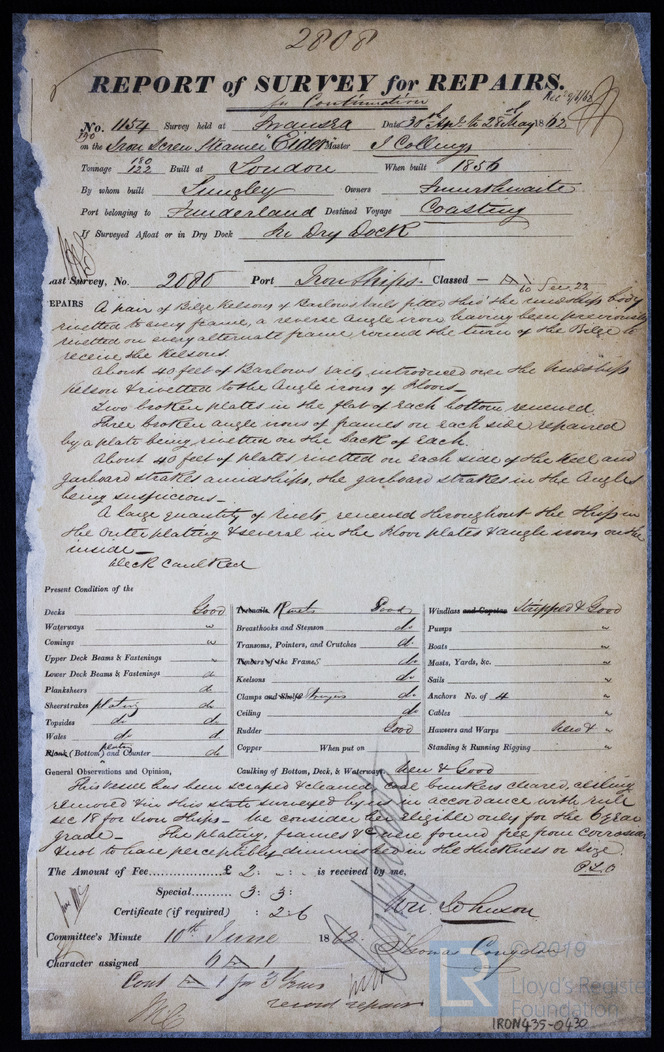 2808
REPORT of SURVEY for REPAIRS.
for Continuation
No. 1154 Survey held at Swansea Date 30th Apl. to 28th May 1862
on the Iron Screw Steamer "Eider" Master J Colling
Tonnage 180 122 Built at London When built 1856
By whom built Lungley Owners Smurthwaite
Port belonging to Sunderland Destined Voyage Coasting
If Surveyed Afloat or in Dry Dock In Dry Dock
Last Survey, No. 2080 Port Iron Ships. Classed — A 60 Sec. 22
REPAIRS A pair of Bilge Kelsons of Barlows rails fitted thro' the midship body
rivetted to every frame, a reverse angle iron having been previously
rivetted on every alternate frame round the turn of the Bilge to
receive the Kelsons.
About 40 feet of Barlows rails introduced over the midship
Kelson & rivetted to the Angle irons of Floors —
Two broken plates in the flat of each bottom renewed.
Three broken angle irons of frames on each side repaired
by a plate being rivetted on the back of each.
About 40 feet of plates rivetted on each side of the Keel and
garboard strakes amidships, the garboard strakes in the Angles
being suspicious —
A large quantity of rivets, renewed throughout the Ship in
the outer plating & several in the Floor plates & angle irons on the
inside —
Deck Caulked
Present Condition of the
Decks Good
Waterways "
Comings "
Upper Deck Beams & Fastenings "
Lower Deck Beams & Fastenings do
Planksheers do
Sheerstrakes plating do
Topsides do do
Wales do do
Plank (Bottom) plating and Counter do
Treenails Rivets Good
Breasthooks and Stemson do
Transoms, Pointers, and Crutches do
Timbers of the Frames do
Keelsons do
Clamps and Shelfs Stringers do
Ceiling do
Rudder Good
Copper When put on
Windlass and Capstan Stripped & Good
Pumps "
Boats "
Masts, Yards, &c. "
Sails "
Anchors No. of 4 "
Cables "
Hawsers and Warps New & "
Standing & Running Rigging "
General Observations and Opinion, Caulking of Bottom, Deck, & Waterways New & Good
This vessel has been scraped & cleaned, coal bunkers cleared, ceiling
removed & in this state surveyed by us in accordance with rule
sec 18 for Iron Ships — We consider her eligible only for the 6 year
grade — The plating, frames &c were found free from corrosion
& not to have perceptibly diminished in the thickness or size.
P.T.O
The Amount of Fee £ 2: is received by me,
Special 3: 3:
Certificate (if required) : 2: 6
Wm Johnson
Committee's Minute 10th June 1862
Thomas Congdon
Character assigned 6 A 1
Cont A 1 for 3 Years
record repairs
© 2019
Lloyd's Register
Foundation
IRON435-0430